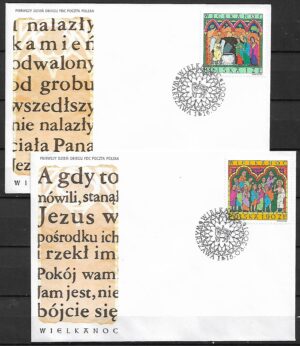 PIERWSZY DZIEŃ OBIEGU FDC POCZTA POLSKA
nalazły
kamień
odwalony
od grobu
wszedłszy
nie nalazły
ciała Pana
WIELKANOC
POLSKA
PIERWSZY DZIEŃ OBIEGU FDC POCZTA POLSKA
A gdy to
mówili, stanął
Jezus w
pośrodku ich
i rzekł im
Pokój wam
Jam jest, nie
bójcie się
WIELKANOC
WIELKANOC
POLSKA 190 ZŁ